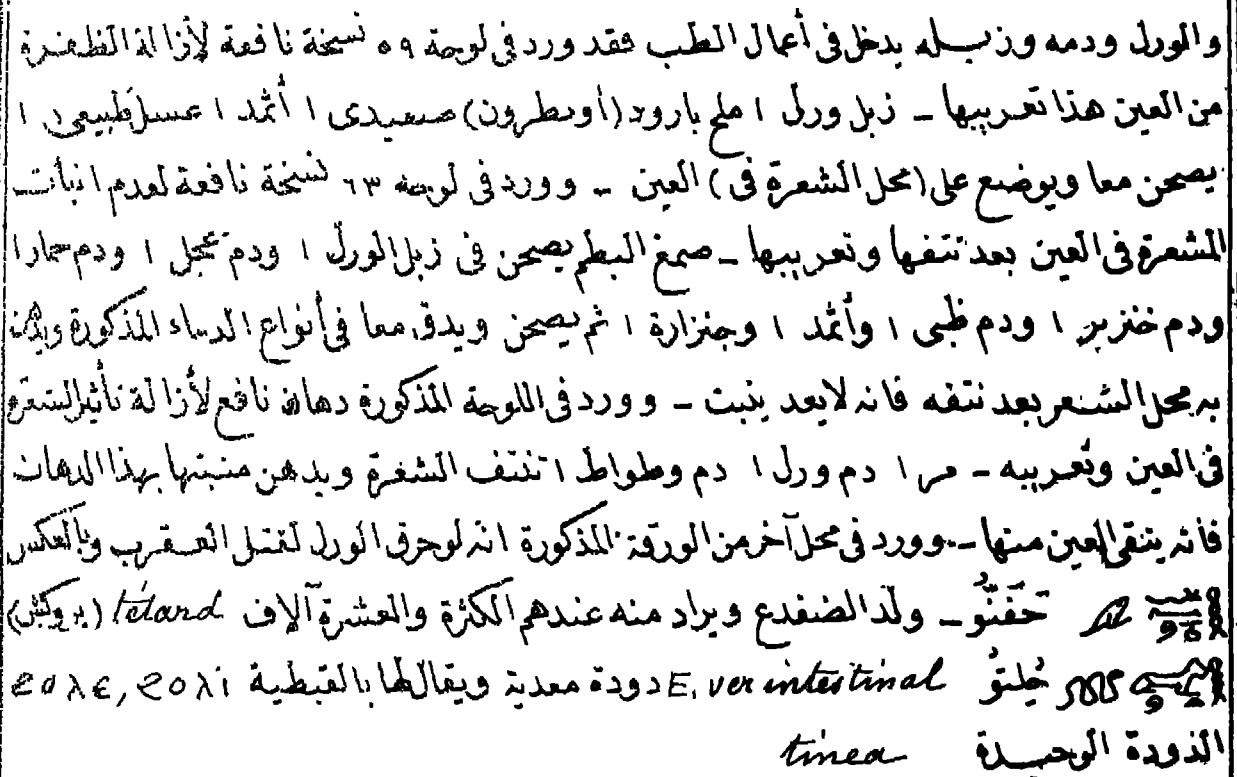 والورل ودمه وزبله يدخل فى أعمال الطب فقد ورد فى لوحة ٥٩ نسخة نافعة لأزالة الظفرة
من العين هذا تعريبها ـ زبل ورل ١ ملح بارود (أو نطرون) صعيدى ١ أثمد ١ عسل طبيعى ١
يصحن معا ويوضع على (محل الشعرة فى) العين ـ وورد فى لوحة ٦٣ نسخة نافعة لعدم انبات
الشعرة فى العين بعد نتفها وتعريبها ـ صمغ البطم يصحن فى زبل الورل ١ ودم عجل ١ ودم حمار ١
ودم خنزير ١ ودم ظبى ١ وأثمد ١ وجنزارة ١ ثم يصحن ويدق معا فى أنواع الدماء المذكورة ويدهن
به محل الشعر بعد نتفه فانه لا يعد ينبت ـ وورد فى اللوحة المذكورة دهان نافع لأزالة تأثير الشعرة
فى العين وتعريبه ـ مر ١ دم ورل ١ دم وطواط ١ تنتف الشعرة ويدهن منبتها بهذا الدهان
فانه ينقى العين منها ـ وورد فى محل آخر من الورقة المذكورة انه لو حرق الورل لقتل العقرب وبالعكس
حَفَنُّو ـ ولد الضفدع ويراد منه عندهم الكثرة والعشرة آلاف tétard (بروكش)
حُلِتوُ E, ver intestinal دودة معدية ويقال لها بالقبطية ϩⲟⲗⲉ, ϩⲟⲗⲓ
الدودة الوحيدة tinea